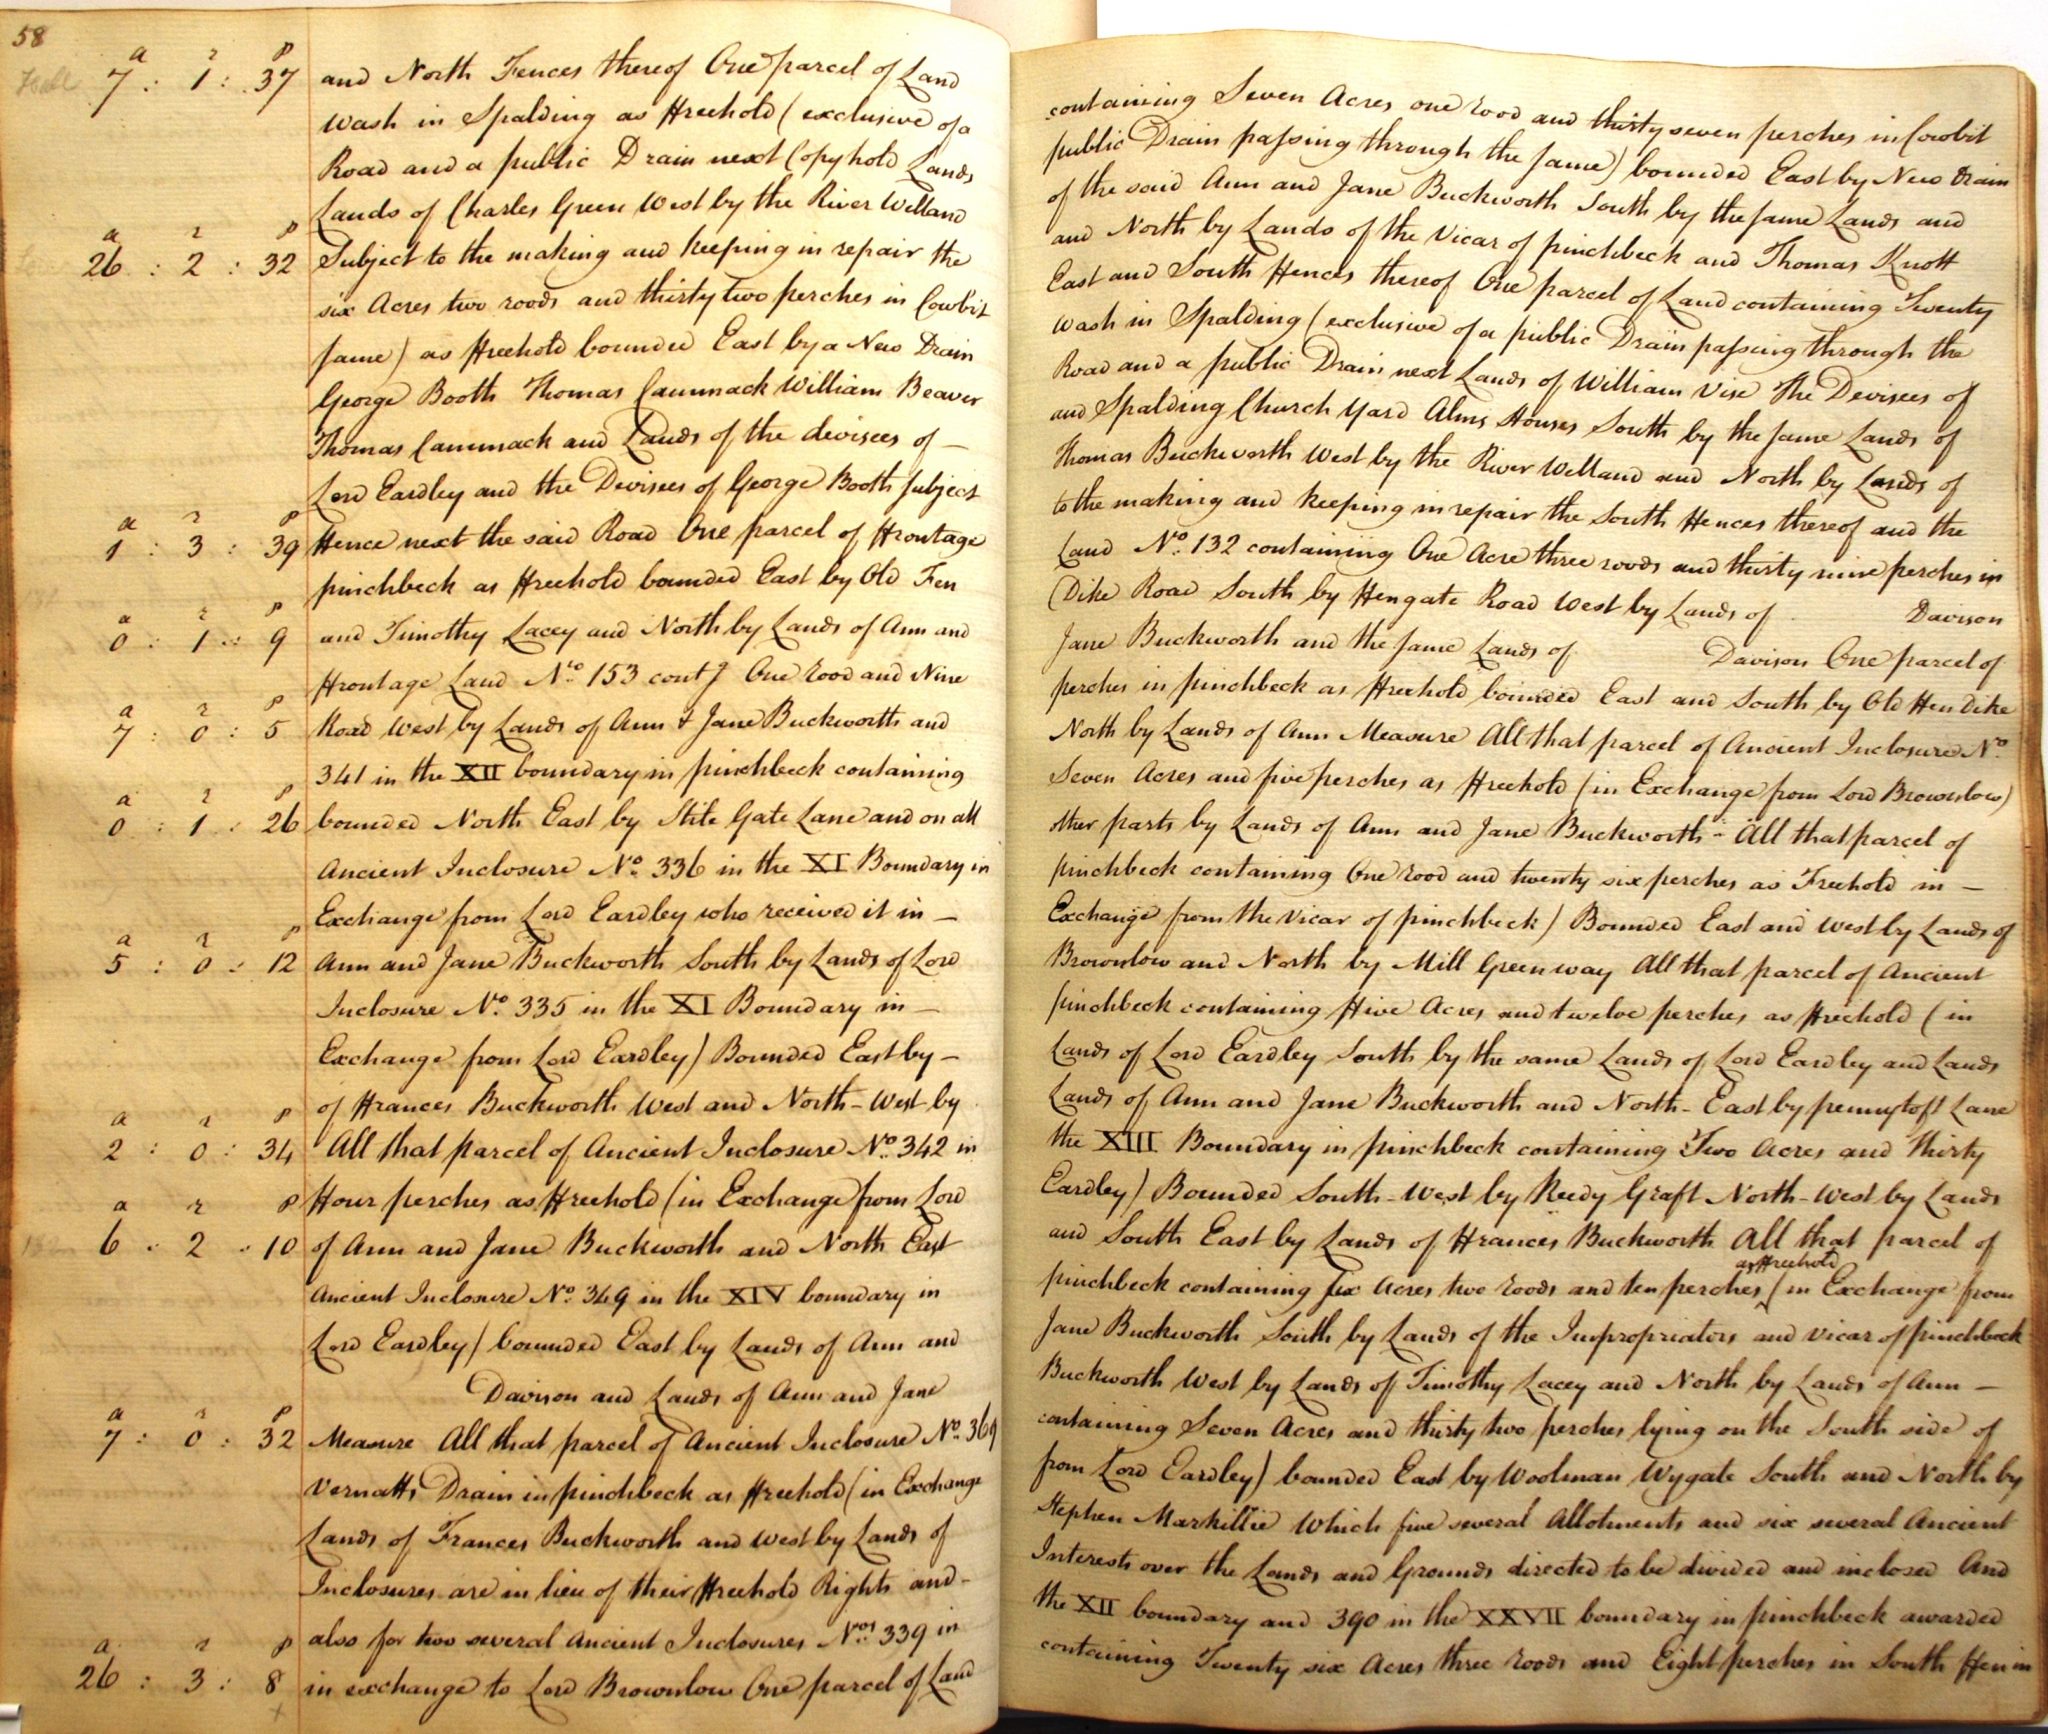 58
a r p
7 : 1 : 37 and North Fences thereof One parcel of Land containing Seven Acres one rood and thirty seven perches in Cowbit
Wash in Spalding as Freehold (exclusive of a public Drain passing through the same) bounded East by New Drain
Road and a public Drain next Copyhold Lands of the said Ann and Jane Buckworth South by the same Lands and
Lands of Charles Green West by the River Welland and North by Lands of the Vicar of pinchbeck and Thomas Knott
a r p
26 : 2 : 32 Subject to the making and keeping in repair the East and South Fences thereof One parcel of Land containing Twenty
six Acres two roods and thirty two perches in Cowbit Wash in Spalding (exclusive of a public Drain passing through the
same) as Freehold bounded East by a New Drain Road and a public Drain next Lands of William Vise The Devisees of
George Booth Thomas Cammack William Beaver and Spalding Church Yard Alms Houses South by the same Lands of
Thomas Cammack and Lands of the devisees of — Thomas Buckworth West by the River Welland and North by Lands of
Lord Eardley and the Devisees of George Booth subject to the making and keeping in repair the South Fences thereof and the
a r p
1 : 3 : 39 Fence next the said Road One parcel of Frontage Land No. 132 containing One Acre three roods and thirty nine perches in
pinchbeck as Freehold bounded East by Old Fen Dike Road South by Fengate Road West by Lands of Davison
a r p
0 : 1 : 9 and Timothy Lacey and North by Lands of Ann and Jane Buckworth and the same Lands of Davison One parcel of
Frontage Land No. 153 contg One rood and Nine perches in pinchbeck as Freehold bounded East and South by Old Fen Dike
a r p
7 : 0 : 5 Road West by Lands of Ann & Jane Buckworth and North by Lands of Ann Measure All that parcel of Ancient Inclosure No.
341 in the XII boundary in pinchbeck containing Seven Acres and five perches as Freehold (in Exchange from Lord Brownlow)
a r p
0 : 1 : 26 bounded North East by Stite Gate Lane and on all other parts by Lands of Ann and Jane Buckworth - All that parcel of
Ancient Inclosure No. 336 in the XI Boundary in pinchbeck containing One rood and twenty six perches as Freehold in —
Exchange from Lord Eardley who received it in — Exchange from the Vicar of pinchbeck) Bounded East and West by Lands of
a r p
5 : 0 : 12 Ann and Jane Buckworth South by Lands of Lord Brownlow and North by Mill Green way All that parcel of Ancient
Inclosure No. 335 in the XI Boundary in — pinchbeck containing Five Acres and twelve perches as Freehold (in
Exchange from Lord Eardley) Bounded East by — Lands of Lord Eardley South by the same Lands of Lord Eardley and Lands
of Frances Buckworth West and North-West by Lands of Ann and Jane Buckworth and North-East by pennytoft Lane
a r p
2 : 0 : 34 All that parcel of Ancient Inclosure No. 342 in the XIII Boundary in pinchbeck containing Two Acres and Thirty
a r p
Four perches as Freehold (in Exchange from Lord Eardley) Bounded South-West by Reedy Graft North-West by Lands
6 : 2 : 10 of Ann and Jane Buckworth and North East and South East by Lands of Frances Buckworth All that parcel of
Ancient Inclosure No. 349 in the XIV boundary in pinchbeck containing six Acres two roods and ten perches as Freehold (in Exchange from
Lord Eardley) bounded East by Lands of Ann and Jane Buckworth South by Lands of the Impropriators and Vicar of pinchbeck
Davison and Lands of Ann and Jane Buckworth West by Lands of Timothy Lacey and North by Lands of Ann —
a r p
7 : 0 : 32 Measure All that parcel of Ancient Inclosure No. 369 containing Seven Acres and thirty two perches lying on the South side of
Vernatts Drain in pinchbeck as Freehold (in Exchange from Lord Eardley) bounded East by Woolman Wygate South and North by
Lands of Frances Buckworth and West by Lands of Stephen Markillie Which five several Allotments and six several Ancient
Inclosures are in lieu of their Freehold Rights and — Interests over the Lands and Grounds directed to be divided and inclosed And
also for two several Ancient Inclosures Nos. 339 in the XII boundary and 390 in the XXVII boundary in pinchbeck awarded
a r p
26 : 3 : 8 in exchange to Lord Brownlow One parcel of Land containing Twenty six Acres three roods and Eight perches in South Fen in